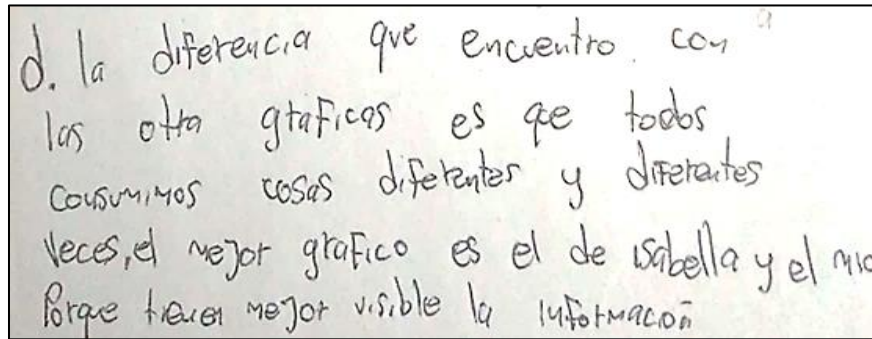 d. la diferencia que encuentro con
las otra graficas es que todos
consumimos cosas diferentes y diferentes
veces, el mejor grafico es el de isabella y el mio
Porque tienen mejor visible la informacion